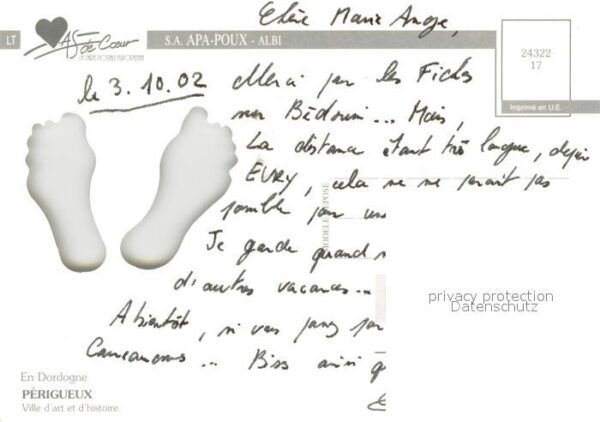 Chère Marie Ange,
LT
AS de Cœur
LA CARTE POSTALE EUROPÉENNE
S.A. APA-POUX - ALBI
24322
17
Imprimé en U.E.
le 3.10.02
Merci par les Fiches
sur Bédouin... Mais,
La distance étant très longue, depuis
EVRY, cela ne me parait pas
possible pour un
Je garde quand
d'autres vacances...
MODÈLE DÉPOSÉ
privacy protection
Datenschutz
A bientôt, si vous par
... Bises ainsi q
En Dordogne
PÉRIGUEUX
Ville d'art et d'histoire.